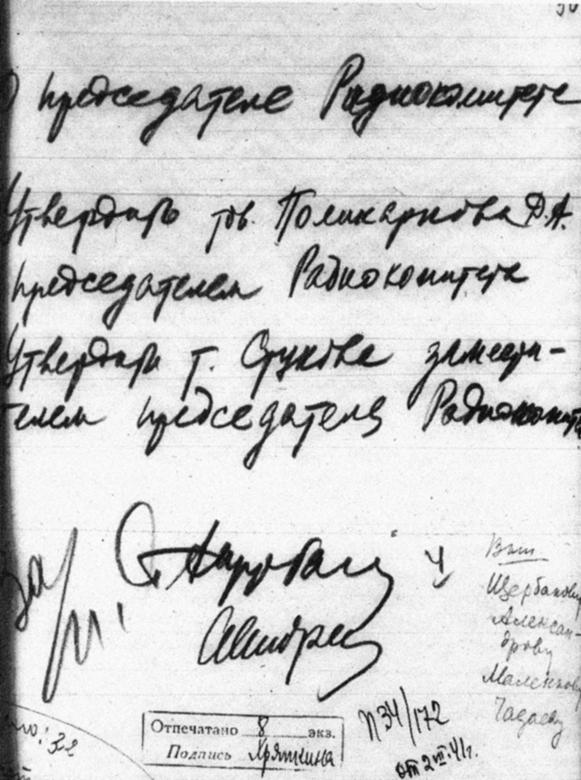 О председателе Радиокомитета
Утвердить тов. Поликарпова Д.А.
председателем Радиокомитета
Утвердить т. Стукова замести-
телем председателя Радиокомите
за
Вып
Щербакову
Алексан-
дрову
Маленкову
Чадаеву
Отпечатано 8 экз.
Подпись Хряпкина
П 34/172
от 2.VII.41г.